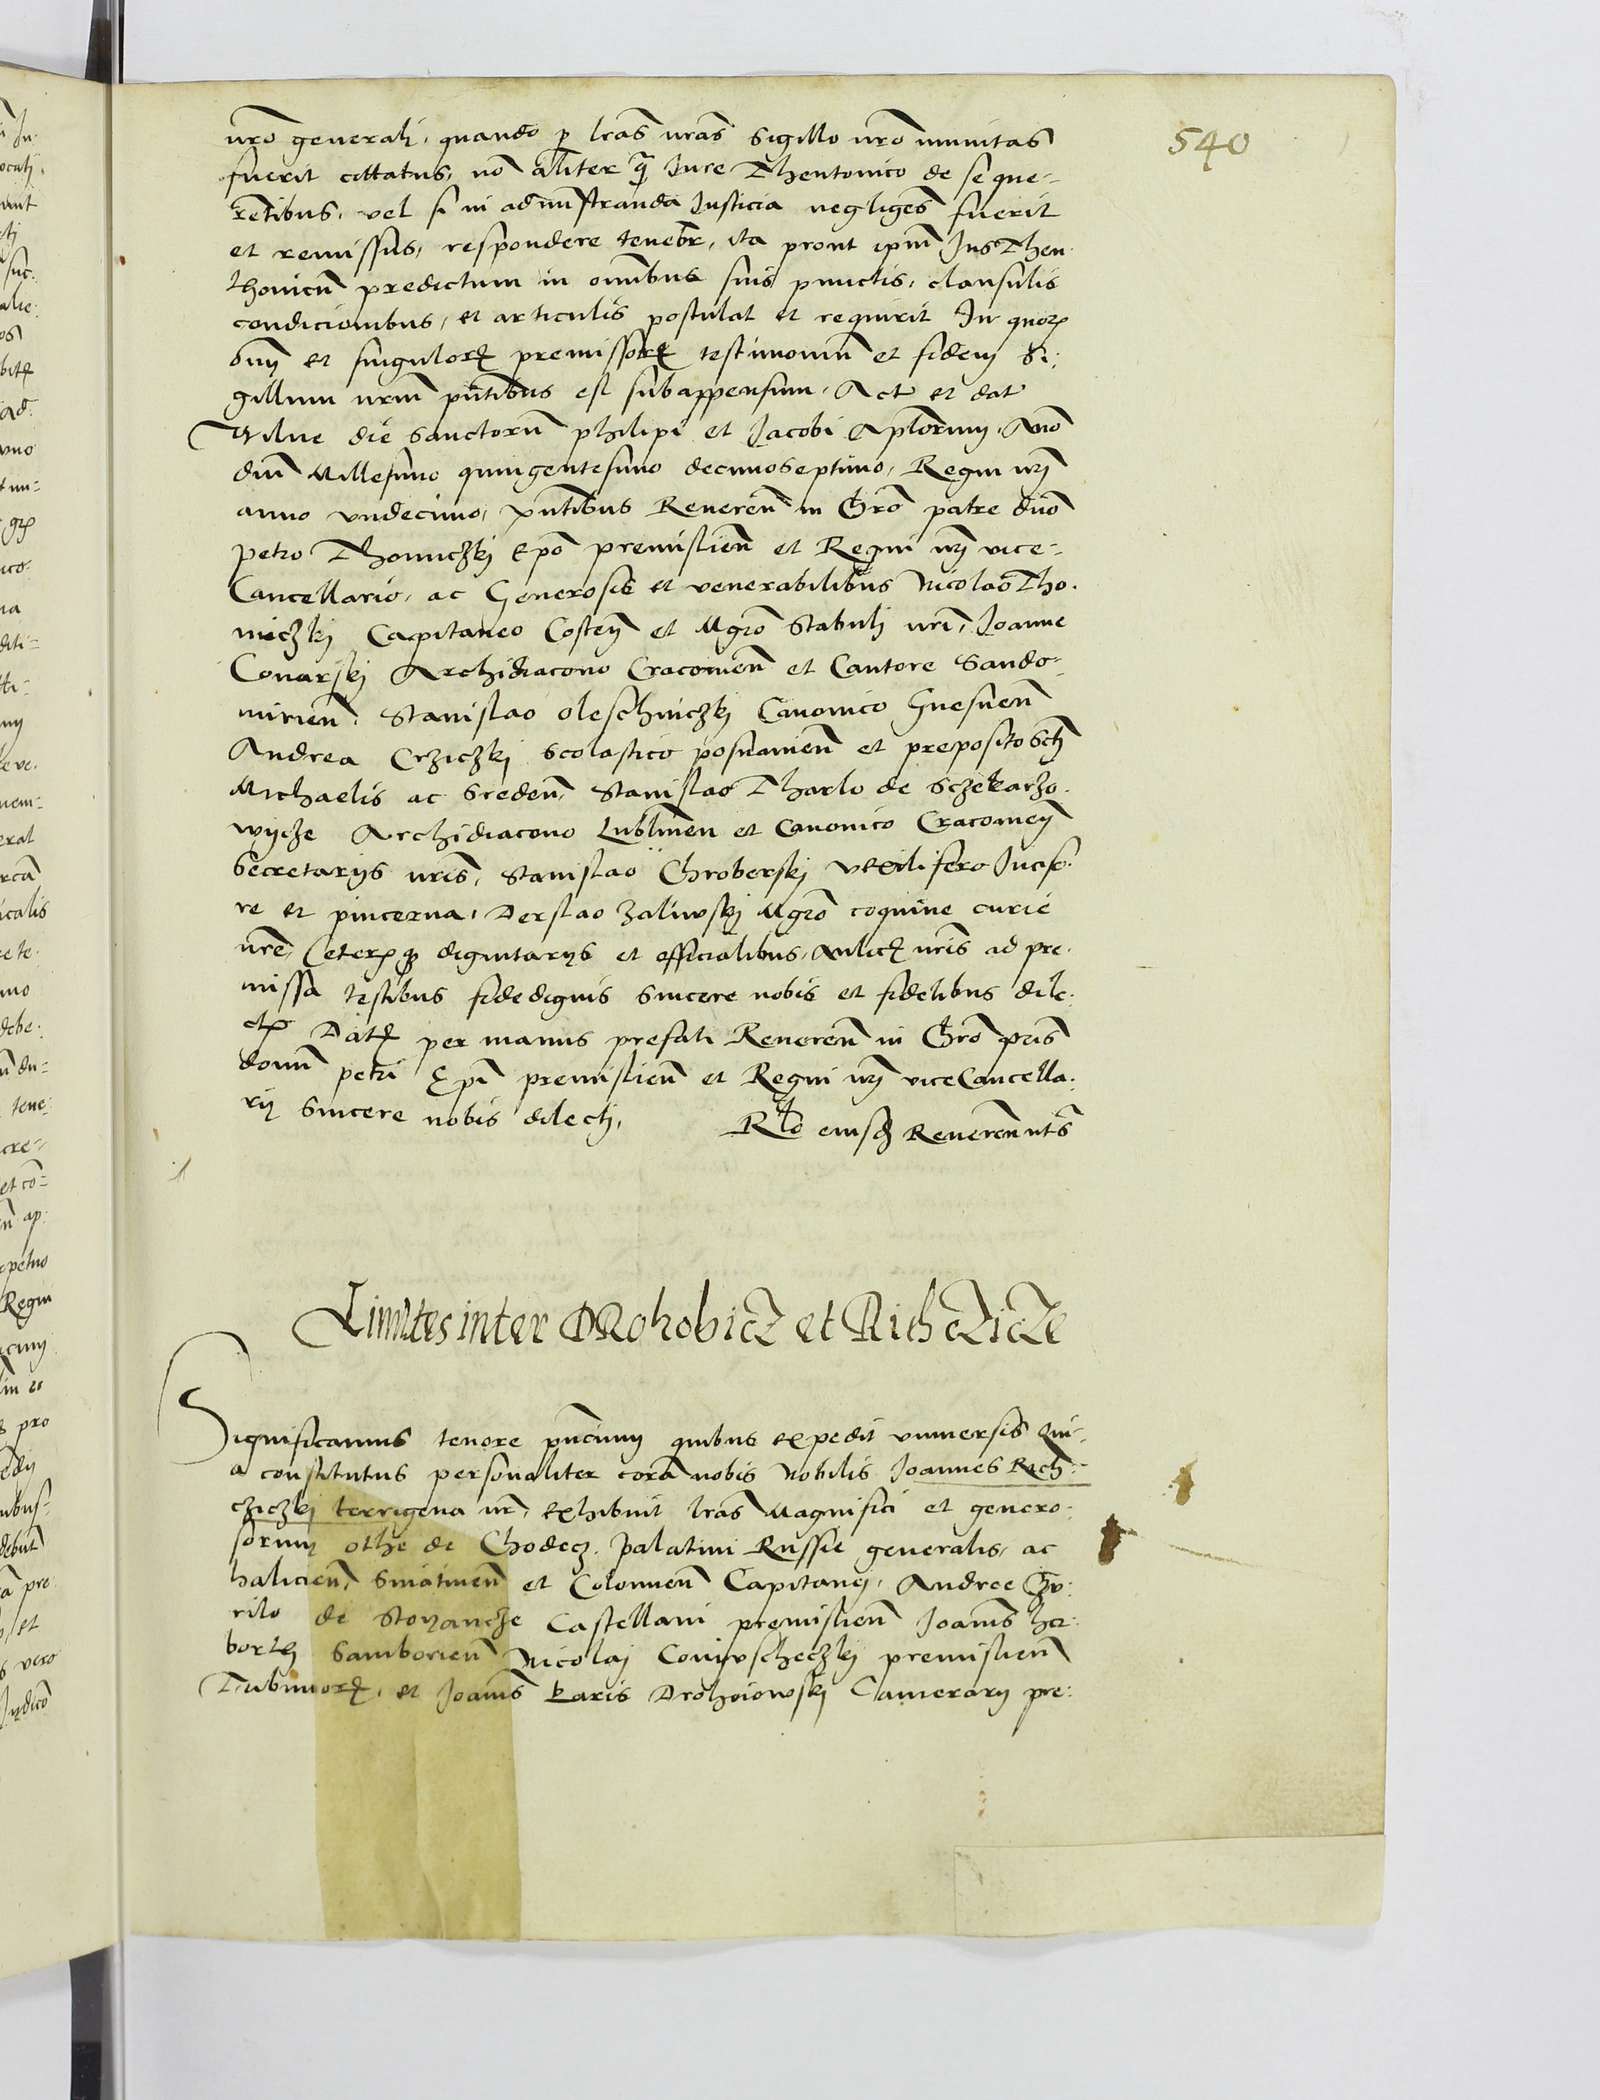 540
nro generali, quando p lras nras Sigillo nro munitas
fuerit cittatus, no aliter q Iure Thentonico de se que-
retibus, vel si in adminstranda Iusticia negliges fuerit
et remissus, respondere tenebr, ita prout ipm Ius Then-
thonicu predictum in omibus suis punctis, clausulis
condicionibus, et articulis postulat et requirit In quor
oim et singulor premissor testimoniu et fidem Si-
gillum nrm pntibus est subappensum, Act et dat
Vilne die Sanctoru philipi et Jacobi Aplorum, Ano
dni Millesimo quingentesimo decimoseptimo, Regni nri
anno undecimo, pntibus Reueren in Chro patre dno
petro Thomiczkj Epo premislien et Regni nri vice-
Cancellario, ac Generosis et venerabilibus Nicolao Tho-
miczkj Capitaneo Costen et Mgro Stabuli nri, Joanne
Conarskj Archidiacono Cracouien et Cantore Sando-
mirien, Stanislao oleschniczkj Canonico Gnesnen
Andrea Crziczkj Scolastico posnanien et preposito Sti
Michaelis ac Sreden, Stanislao Tharlo de Sczekarzo-
wycze Archidiacono Lublinen et Canonico Cracouien
Secretarys nris, Stanislao Chroberskj vexilifero Inciso-
re et pincerna, Derslao Zaliwskj Mgro coquine curie
nre, Ceterq dignitarys et officialibus, Aulic nris ad pre-
missa testibus fidedignis Sincere nobis et fidelibus dile-
ct Dat per manus prefati Reueren in Chro pris
domi petri Epi premislien et Regni nri viceCancella-
rij Sincere nobis dilecti,
Rlo eiusd Reueren nts
Limites inter DRohobicz et Rihczicze
Significamus tenore pncium quibus expedit vniuersis Qui-
a constitutus personaliter cora nobis Nobilis Joannes Rich-
cziczkj terrigena nr, exhibuit lras Magnifici et genero-
sorum othe de Chodecz palatini Russie generalis, ac
halicien, Sniatinen et Colomien Capitanej, Andree
rilo de Stoyancze Castellani premislien Joanis her-
borth Samborien Nicolaj premislien
Tribunor, et Joanis Karis Drohoiowskj Camerarij pre-